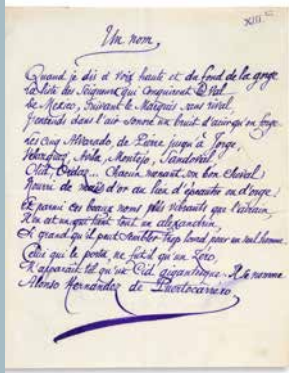 XIII.
Un nom
Quand je dis à voix haute et du fond de la gorge
La liste des Seigneurs qui conquirent le Val
de Mexico, suivant le Marquis sans rival
J'entends dans l'air sonore un bruit d'acier qu'on forge
Les cinq Alvarado, de Pierre jusqu'à Jorge,
Velazquez, Avila, Montejo, Sandoval
Olid, Ordaz... Chacun menant son bon cheval
Nourri de maïs d'or au lieu d'épeautre ou d'orge !
Et parmi ces beaux noms plus vibrants que l'airain,
Il en est un qui tout un alexandrin,
Si grand qu'il peut sembler trop lourd pour un seul homme.
Celui qui le porta, ne fut-il qu'un Zéro,
M'apparaît tel qu'un Cid gigantesque. Il se nomme
Alonso Hernandez de Puertocarrero